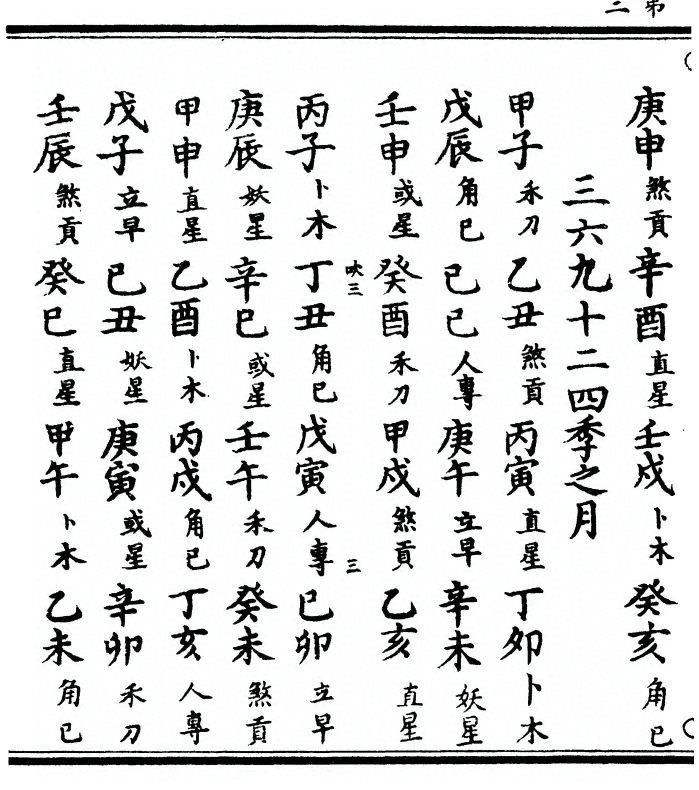 第二
庚申煞貢辛酉直星壬戌卜木癸亥角巳
三六九十二四季之月
甲子禾刀乙丑煞貢丙寅直星丁卯卜木
戊辰角巳己巳人專庚午立早辛未妖星
壬申或星癸酉禾刀甲戌煞貢乙亥直星
吹三三
丙子卜木丁丑角巳戊寅人專己卯立早
庚辰妖星辛巳或星壬午禾刀癸未煞貢
甲申直星乙酉卜木丙戌角巳丁亥人專
戊子立早己丑妖星庚寅或星辛卯禾刀
壬辰煞貢癸巳直星甲午卜木乙未角巳